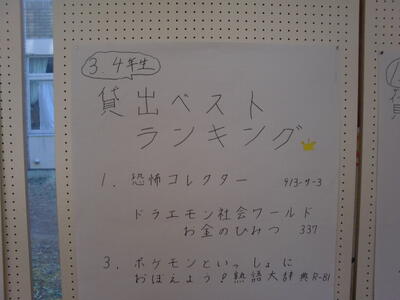 3.4年生
貸出ベスト
ランキング
1. 恐怖コレクター 913-サ-3
ドラエモン社会ワールド
お金のひみつ 337
3. ポケモンといっしょに
おぼえよう!熟語大辞典 R-81